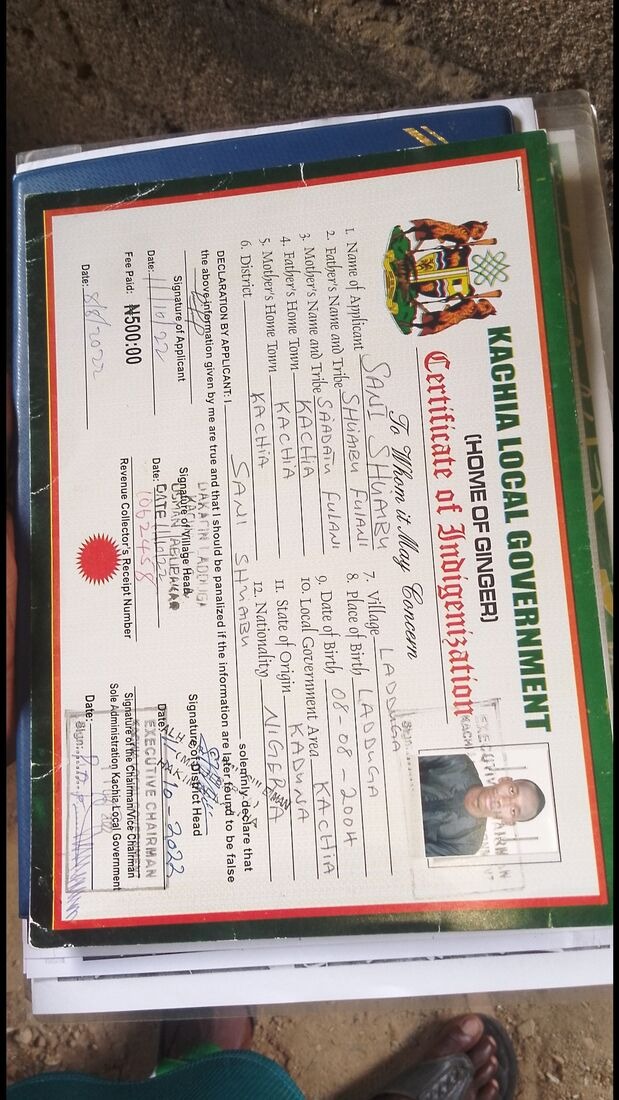 KACHIA LOCAL GOVERNMENT
(HOME OF GINGER)
Certificate of Indigenization
To Whom it May Concern
1. Name of Applicant SANI SHUAIBU
2. Father's Name and Tribe SHUAIBU FULANI
3. Mother's Name and Tribe SAADATU FULANI
4. Father's Home Town KACHIA
5. Mother's Home Town KACHIA
6. District KACHIA
7. Village LADDUGA
8. Place of Birth LADDUGA
9. Date of Birth 08-08-2004
10. Local Government Area KACHIA
11. State of Origin KADUNA
12. Nationality NIGERIA
DECLARATION BY APPLICANT: I SANI SHUAIBU solemnly declare that
the above information given by me are true and that I should be panalized if the information are later found to be false
Signature of Applicant
Date: 11/10/22
Signature of Village Head
Date: DATE 11/10/22
Signature of District Head
Date: 11-10-2022
Fee Paid: ₦500:00
1062458
Revenue Collector's Receipt Number
EXECUTIVE CHAIRMAN
Signature of the Chairman/Vice Chairman
Sole Administration Kachia Local Government
Date: 8/8/2022
Date:
Sign